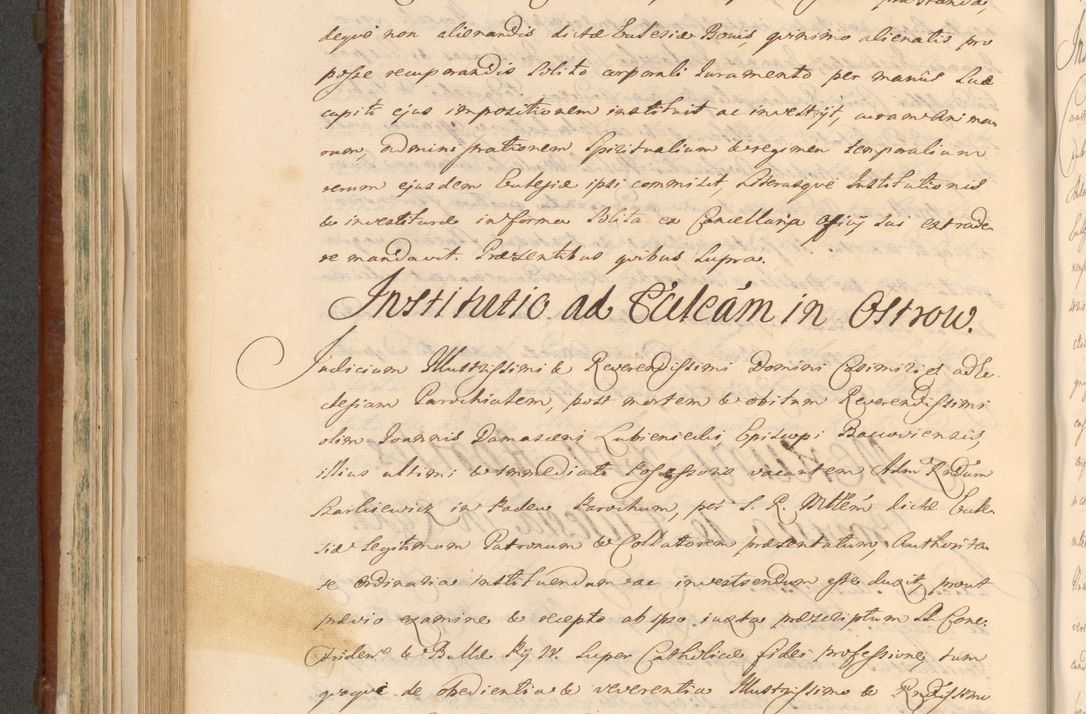 deque non alienandis dictæ Ecclesiæ Bonis, quinimo alienatis pro
posse recuperandis solito corporali Juramento per manus suæ
capiti ejus impositionem instituit ac investijt, curam anima
rum, administrationem Spiritualium & regimen temporalium
rerum ejusdem Ecclesiæ ipsi commisit, Literasque Institutionis
& investituræ in forma solita ex Cancellaria officij sui extrade
re mandavit. Præsentibus quibus supra.
Institutio ad Ecclesiam in Ostrow.
Judicium Illustrissimi & Reverendissimi Domini Casimiri et ad Ec-
clesiam Parochialem, post mortem & obitum Reverendissimi
olim Joannis Damasceni Lubieniecki, Episcopi Bacoviensis,
illius ultimi & immediati Possessoris vacantem Adm Rndum
Skarbiewicz in Padew Parochum, per S. R. Mttem dictæ Eccle
siæ legitimum Patronum & Collatorem præsentatum, Authorita
te Ordinaria instituendum ac investiendum esse duxit, prout
prævio examine & recepto ab ipso juxta præscriptum S. Conc.
Triden & Bullæ Pij IV. super Catholicæ fidei professione, tum
quoque de obedientia & reverentia Illustrissimo & Rndissimo